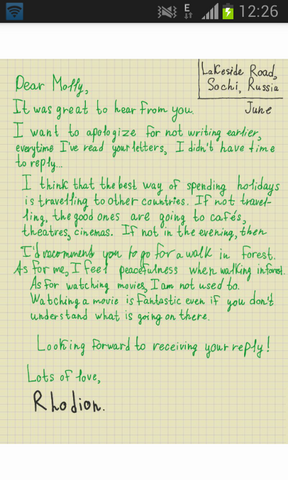 E
12:26
Lakeside Road,
Sochi, Russia
June
Dear Molly,
It was great to hear from you.
I want to apologize for not writing earlier,
everytime I've read your letters, I didn't have time
to reply...
I think that the best way of spending holidays
is travelling to other countries. If not travel-
ling, the good ones are going to cafés,
theatres, cinemas. If not in the evening, then
I'd recommend you to go for a walk in forest.
As for me, I feel peacefulness when walking in forest.
As for watching movies, I am not used to.
Watching a movie is fantastic even if you don't
understand what is going on there.
Looking forward to receiving your reply!
Lots of love,
Rhodion.